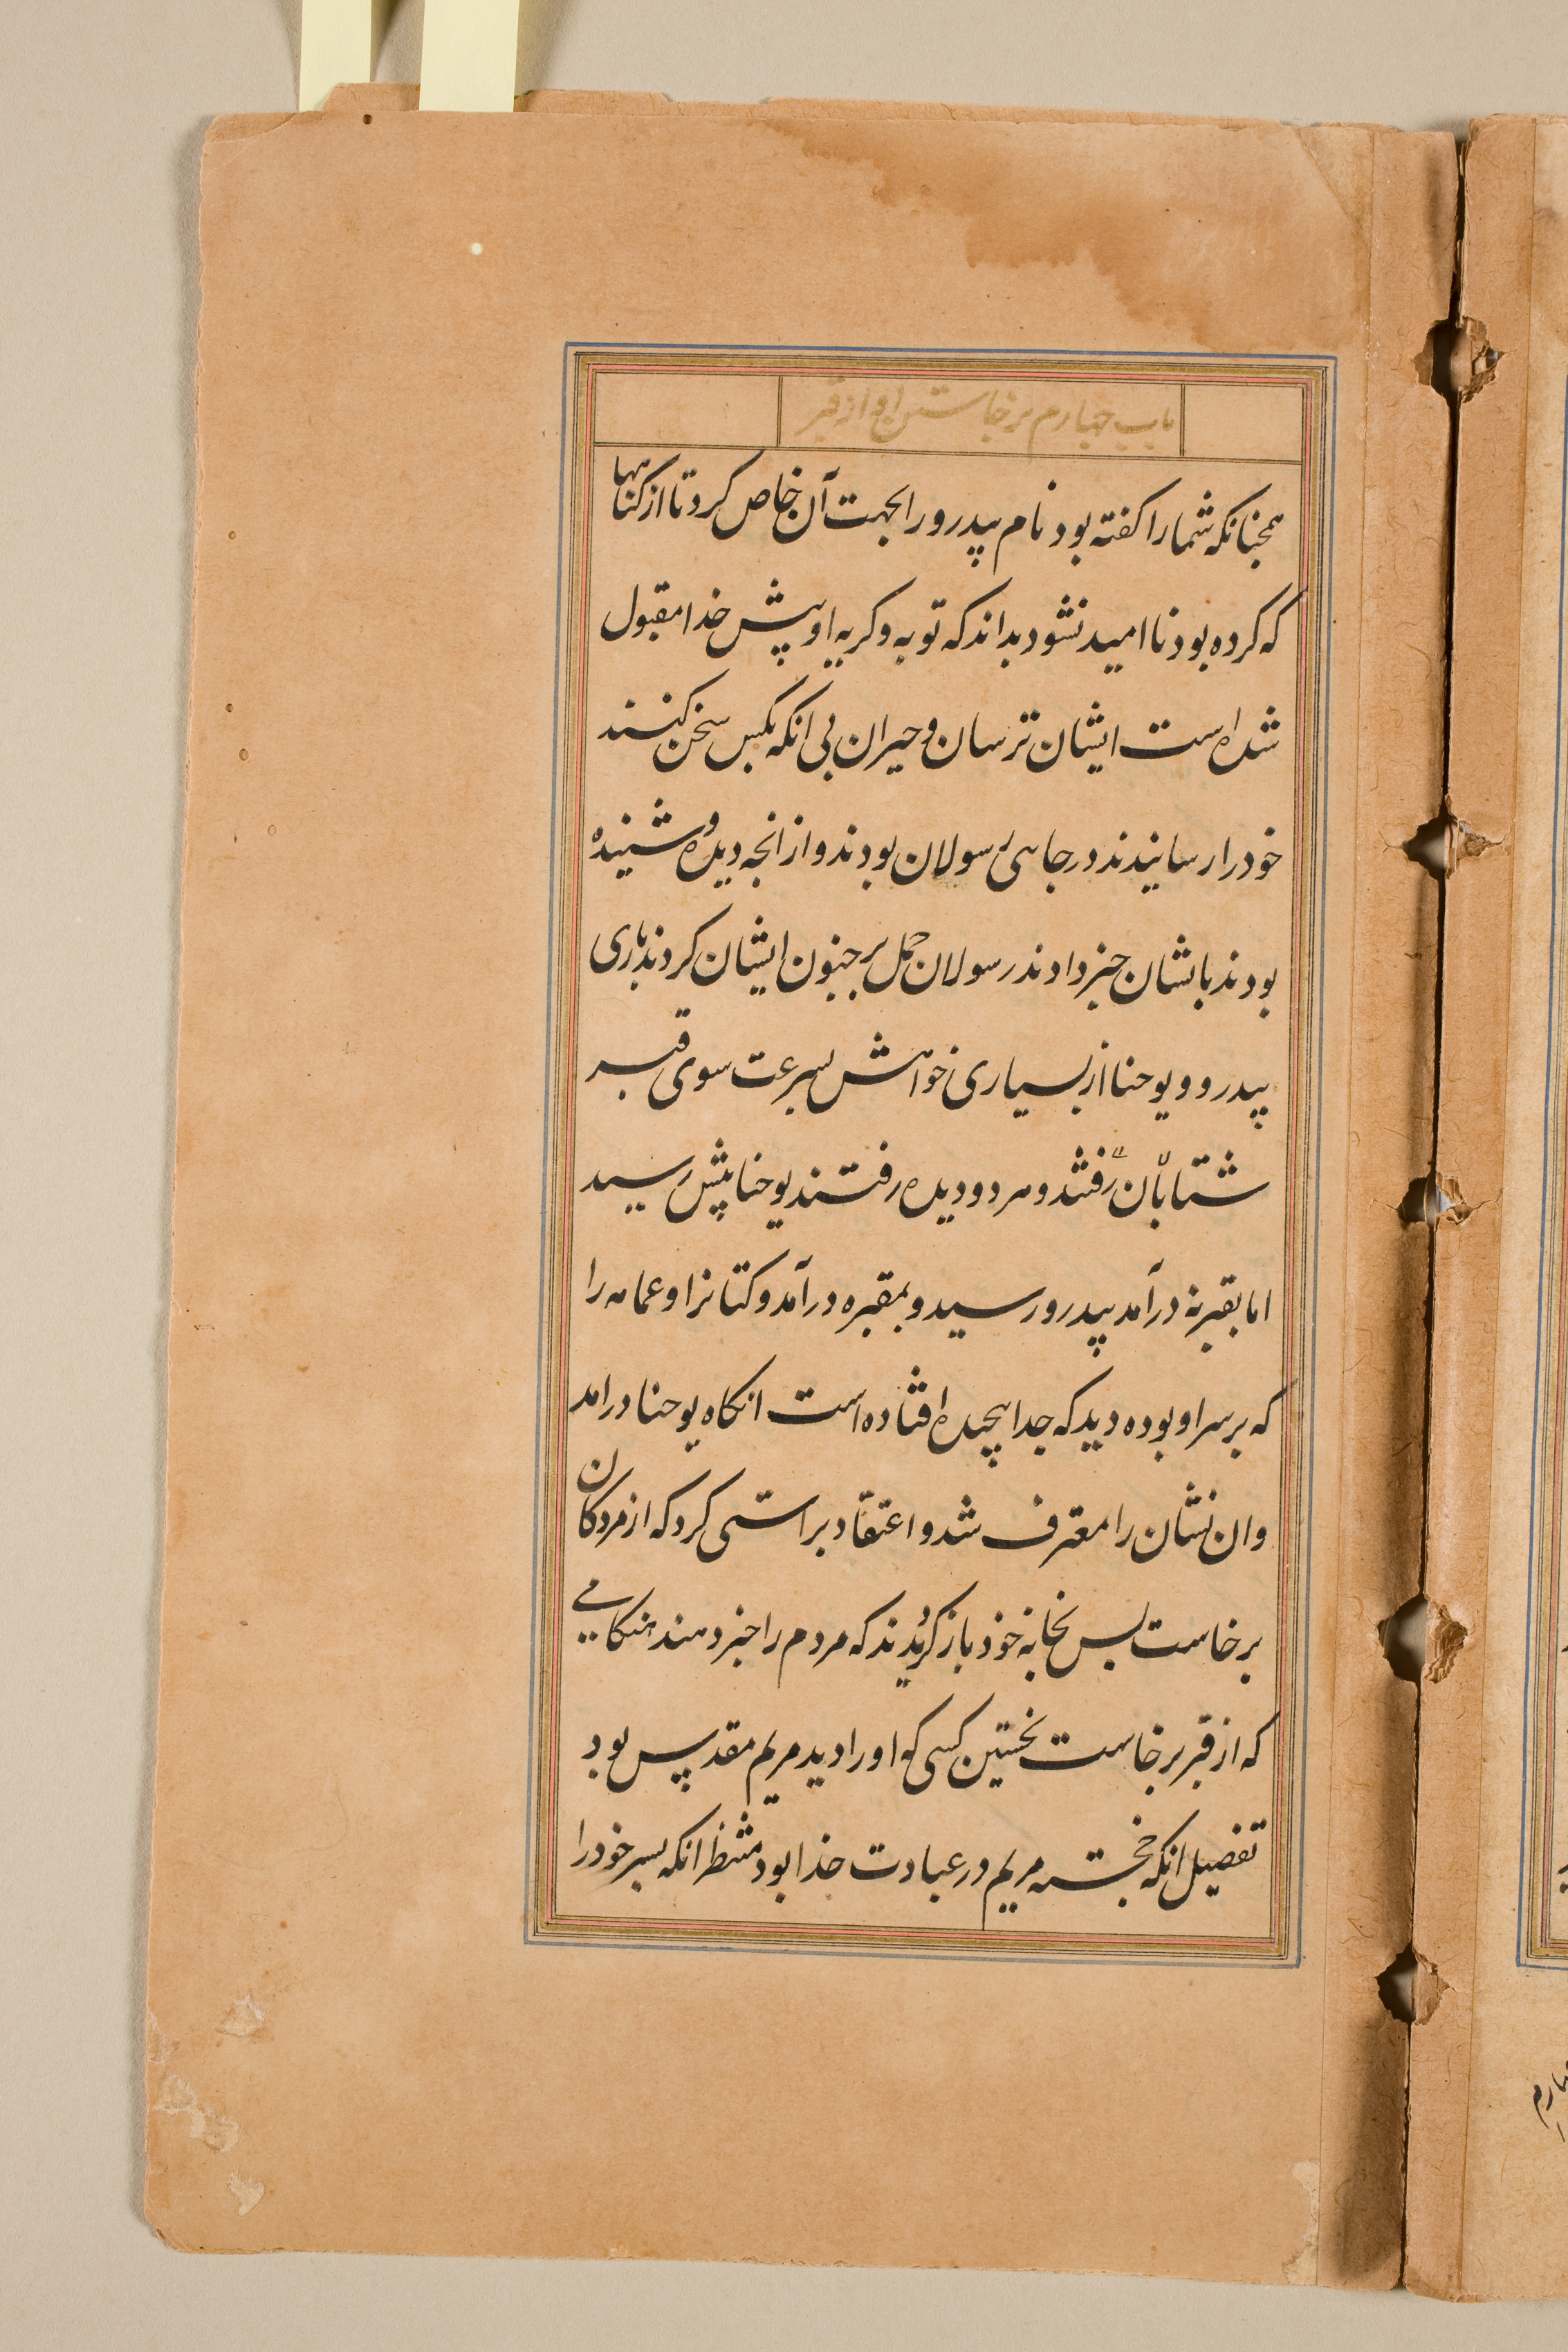 باب چهارم برخاستن او از قبر
همچنانکه شما را کفته بود نام پیدرو را بجهت آن خاص کرد تا از کناهها
که کرده بود نا امید نشود بداند که توبه و کریه او پیش خدا مقبول
شده است ایشان ترسان و حیران بی انکه بکس سخن کنند
خود را رسانیدند در جای رسولان بودند و از انچه دیده و شنیده
بودند بایشان خبر دادند رسولان حمل بر جنون ایشان کردند باری
پیدرو و یوحنا از بسیاری خواهش بسرعت سوی قبر
شتابان رفتند و هر دو دیده رفتند یوحنا پیش رسید
اما بقبر نه درآمد پیدرو رسید و بمقبره درآمد و کتانرا و عمامه را
که بر سر او بوده دید که جدا پیچیده افتاده است انکاه یوحنا درامد
وان نشان را معترف شد و اعتقاد براستی کرد که از مردکان
برخاست پس بخانه خود باز کردیدند که مردم را خبر دهند هنکامی
که از قبر برخاست نخستین کسی کو او را دید مریم مقدس بود
تفصیل انکه خجسته مریم در عبادت خدا بود منتظر انکه پسر خود را